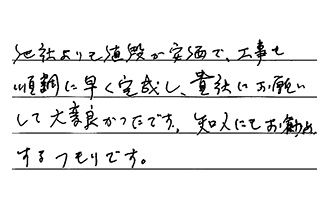 他社よりも値段が安価で、工事も
順調に早く完成し、貴社にお願い
して大変良かったです。知人にもお勧め
するつもりです。